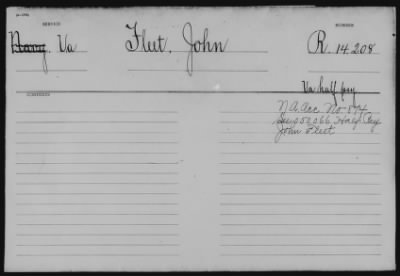 SERVICE
NUMBER
Navy. Va
Fleet, John
R. 14 208
Va half pay
N A Acc. No. 874
See 050066 Half Pay
John Fleet